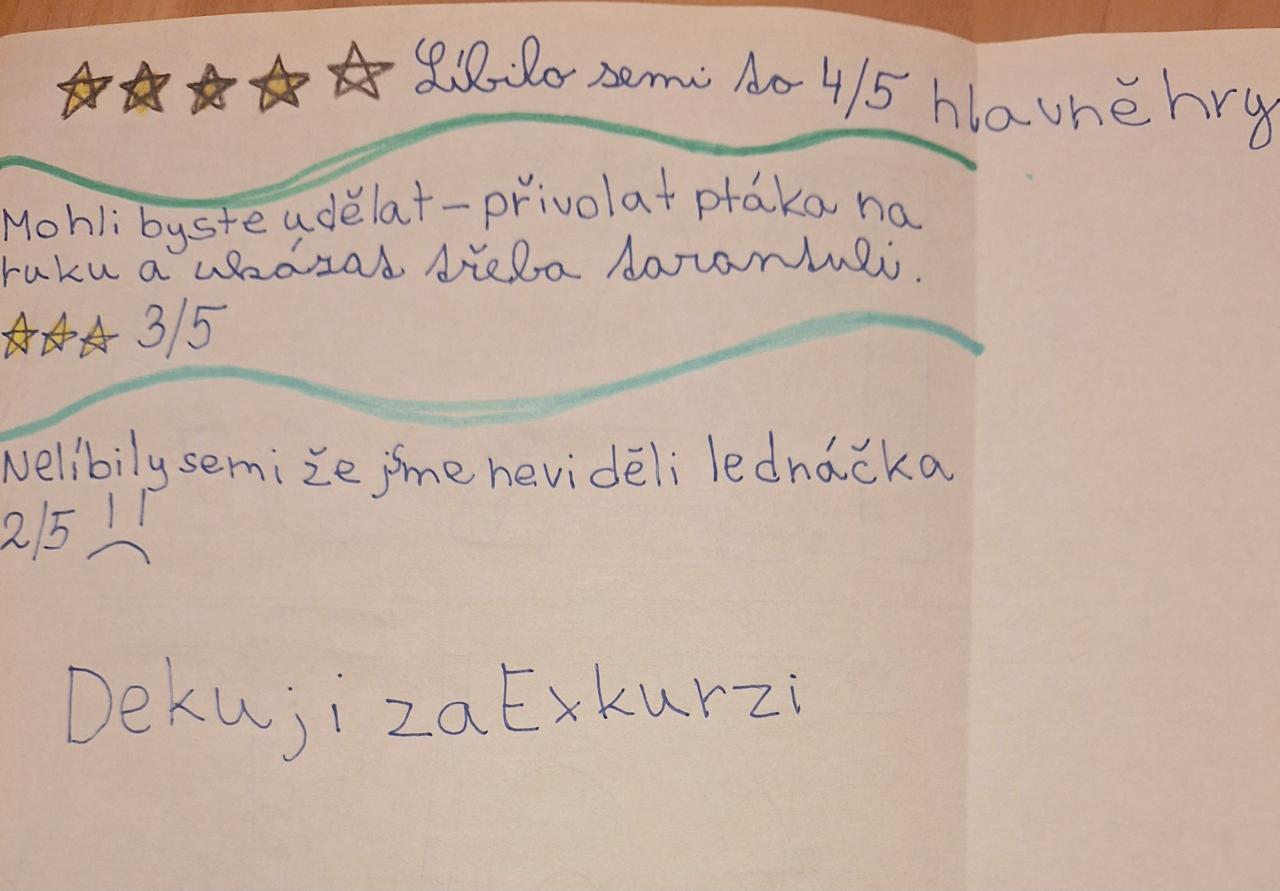 Líbilo semi to 4/5 hlavně hry
Mohli byste udělat – přivolat ptáka na
ruku a ukázat třeba tarantuli.
3/5
Nelíbily semi že jsme neviděli lednáčka
2/5
Dekuji za Exkurzi